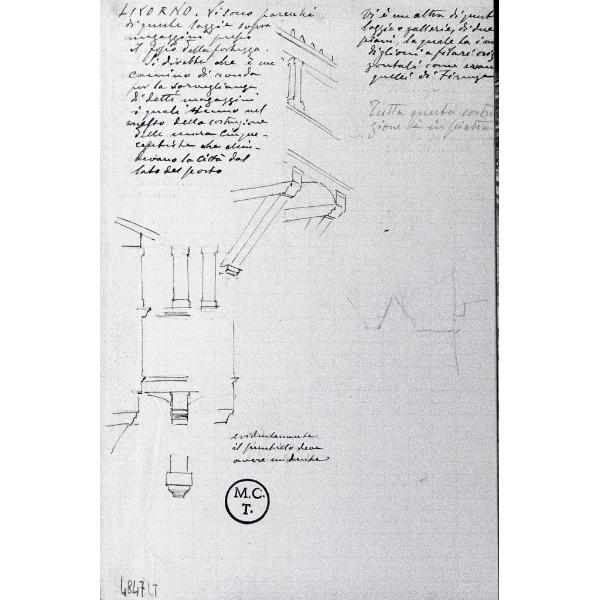 LIVORNO. Vi sono parecchie
di queste loggie sopra
magazzini presso
il della fortezza.
Si direbbe che è un
camino di ronda
per la sorveglianza
di detti magazzini
i quali nel
della costruzione
delle mura cinque-
centesche che chiu-
devano la città dal
lato del porto
Vi è un altra di queste
loggie o gallerie, di due
piani la quale ha i mo
diglioni a filari oriz
zontali come erano
quelli di Firenze
Tutta questa costru
zione è in pietra
evidentemente
il deve
avere
M.C.
T.
4847LT